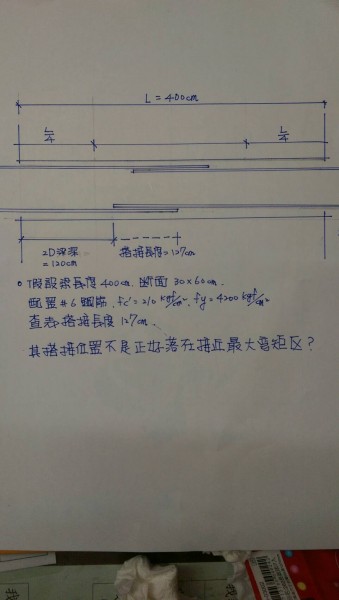 L = 400cm
L/4
L/4
2D梁深
= 120cm
搭接長度=127cm
。假設梁長度400cm. 斷面 30×60cm.
配置 #6 鋼筋, fc'=210 kgf/cm², fy=4200 kgf/cm²
查表搭接長度127cm.
其搭接位置不是正好落在接近最大弯矩区?